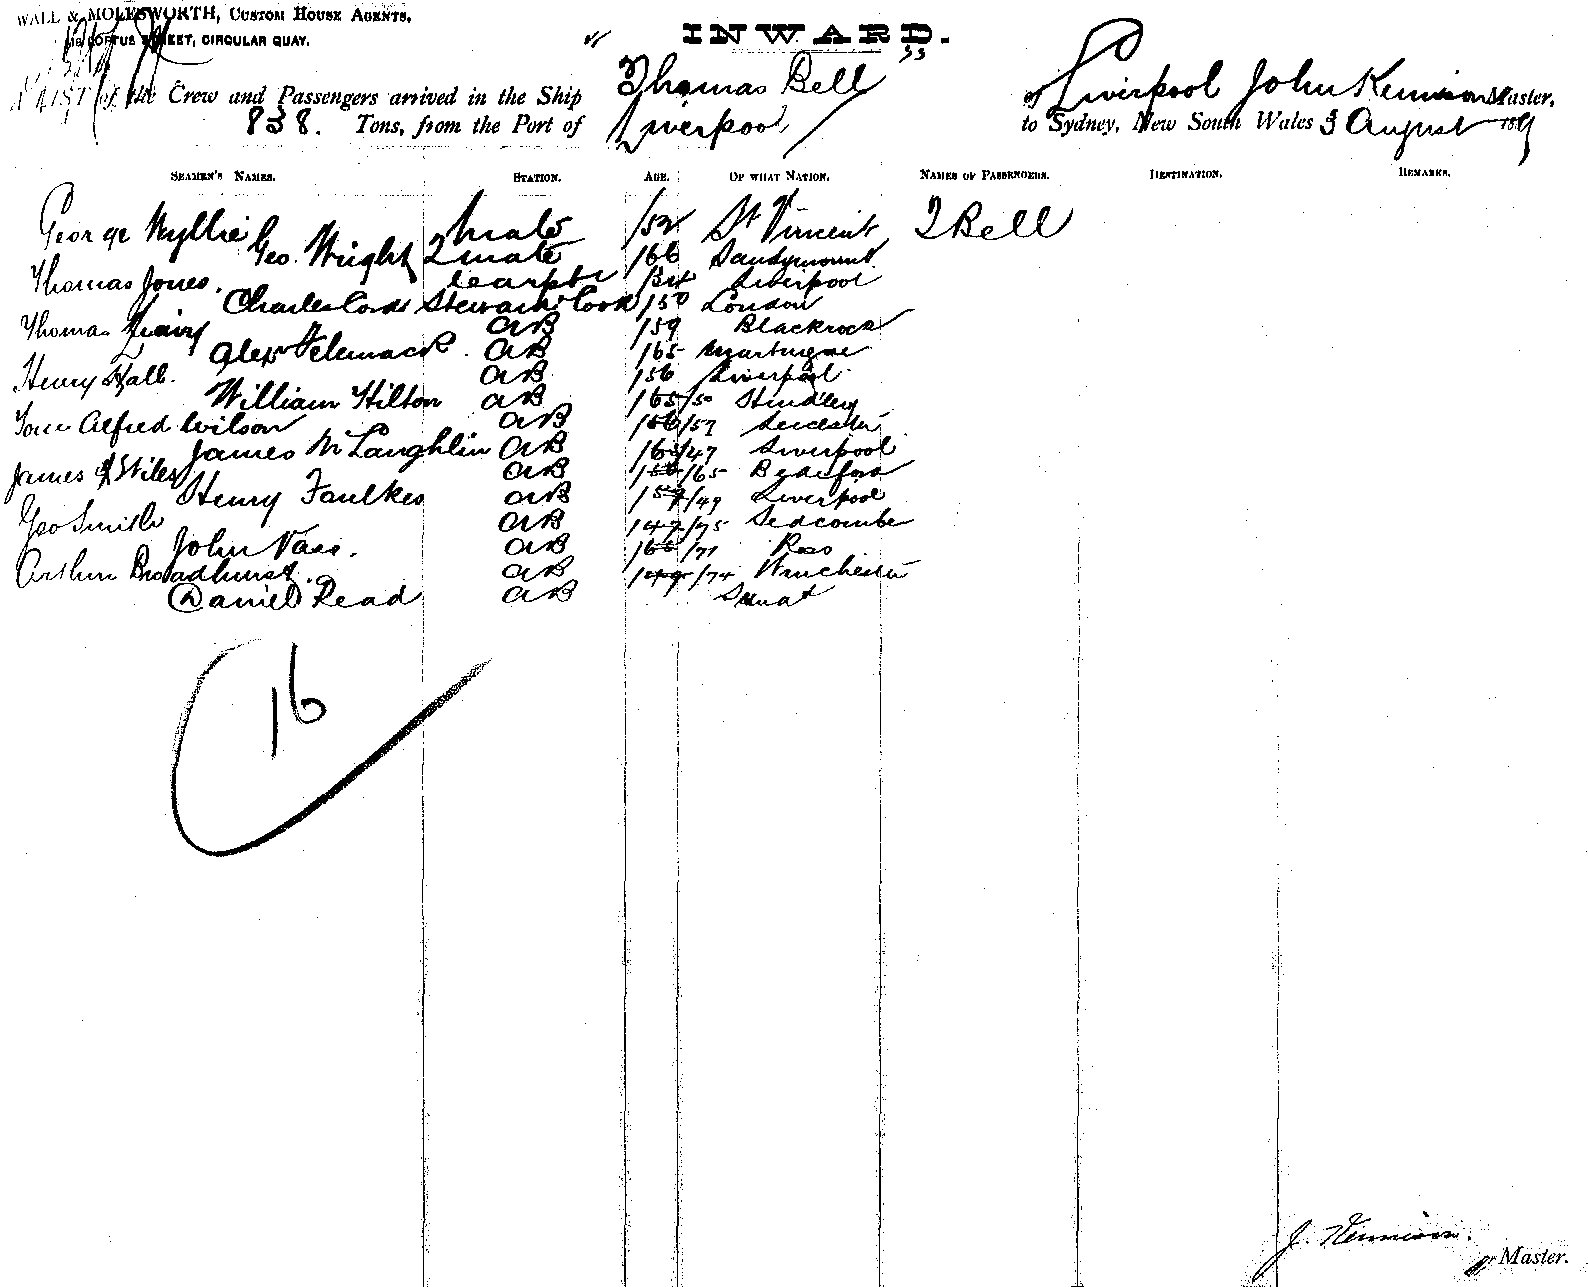 WALL & MOLESWORTH, CUSTOM HOUSE AGENTS,
LOFTUS STREET, CIRCULAR QUAY.
INWARD.
A LIST of the Crew and Passengers arrived in the Ship Thomas Bell of Liverpool John Kennison Master,
838. Tons, from the Port of Liverpool to Sydney, New South Wales 3 August 189
SEAMEN'S NAMES. STATION. AGE. OF WHAT NATION. NAMES OF PASSENGERS. DESTINATION. REMARKS.
George Wyllie Mate /52 St Vincent T Bell
Geo. Wright 2 mate 166 Sandymount
Thomas Jones. Liverpool
Charles Steward & Cook 150 London
Thomas AB 159 Blackrock
Alex Telemack. AB 165 Martinique
Henry AB 156 Liverpool
William Hilton AB 165/50 Hindley
Alfred Wilson AB /57 Leicester
James McLaughlin AB /47 Liverpool
James AB /65
Henry Faulkes AB /49 Liverpool
Geo Smith AB 147/75 Sedcombe
John Vass. AB /71 Ross
Arthur Broadhurst. AB /74 Winchester
Daniel Read AB
16
J. Kennison.
Master.